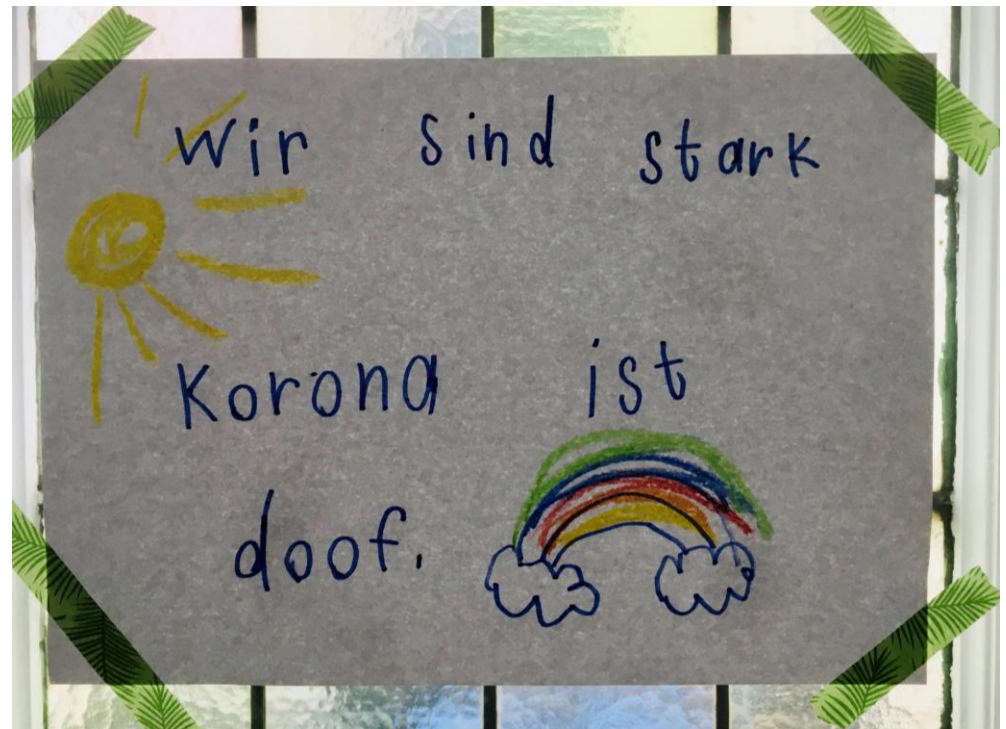 Wir sind stark
Korona ist
doof.